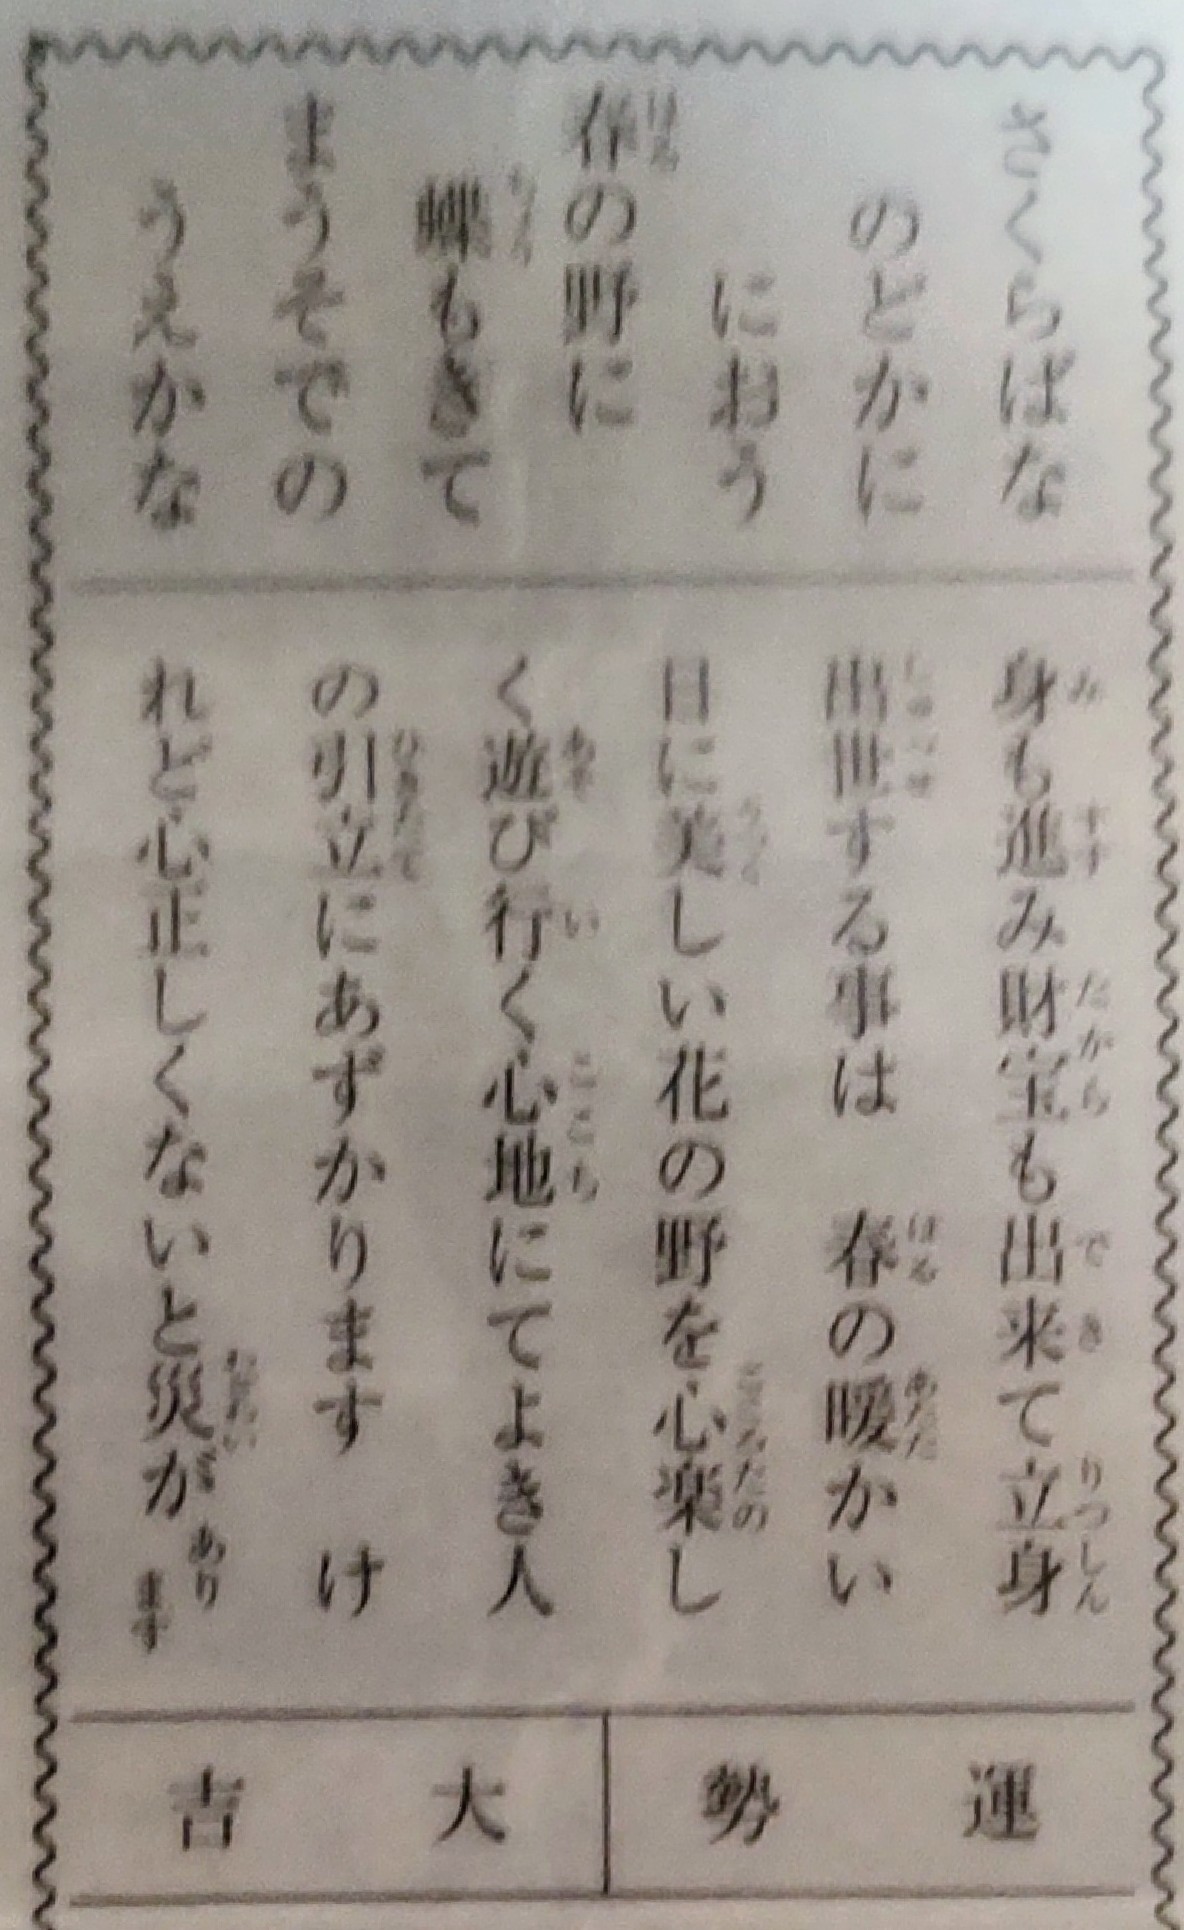 さくらばな
のどかに
におう
春の野に
蝶もきて
まうそでの
うえかな
身も進み財宝も出来て立身
出世する事は　春の暖かい
日に美しい花の野を心楽し
く遊び行く心地にてよき人
の引立にあずかります　け
れど心正しくないと災があります
運勢
大吉